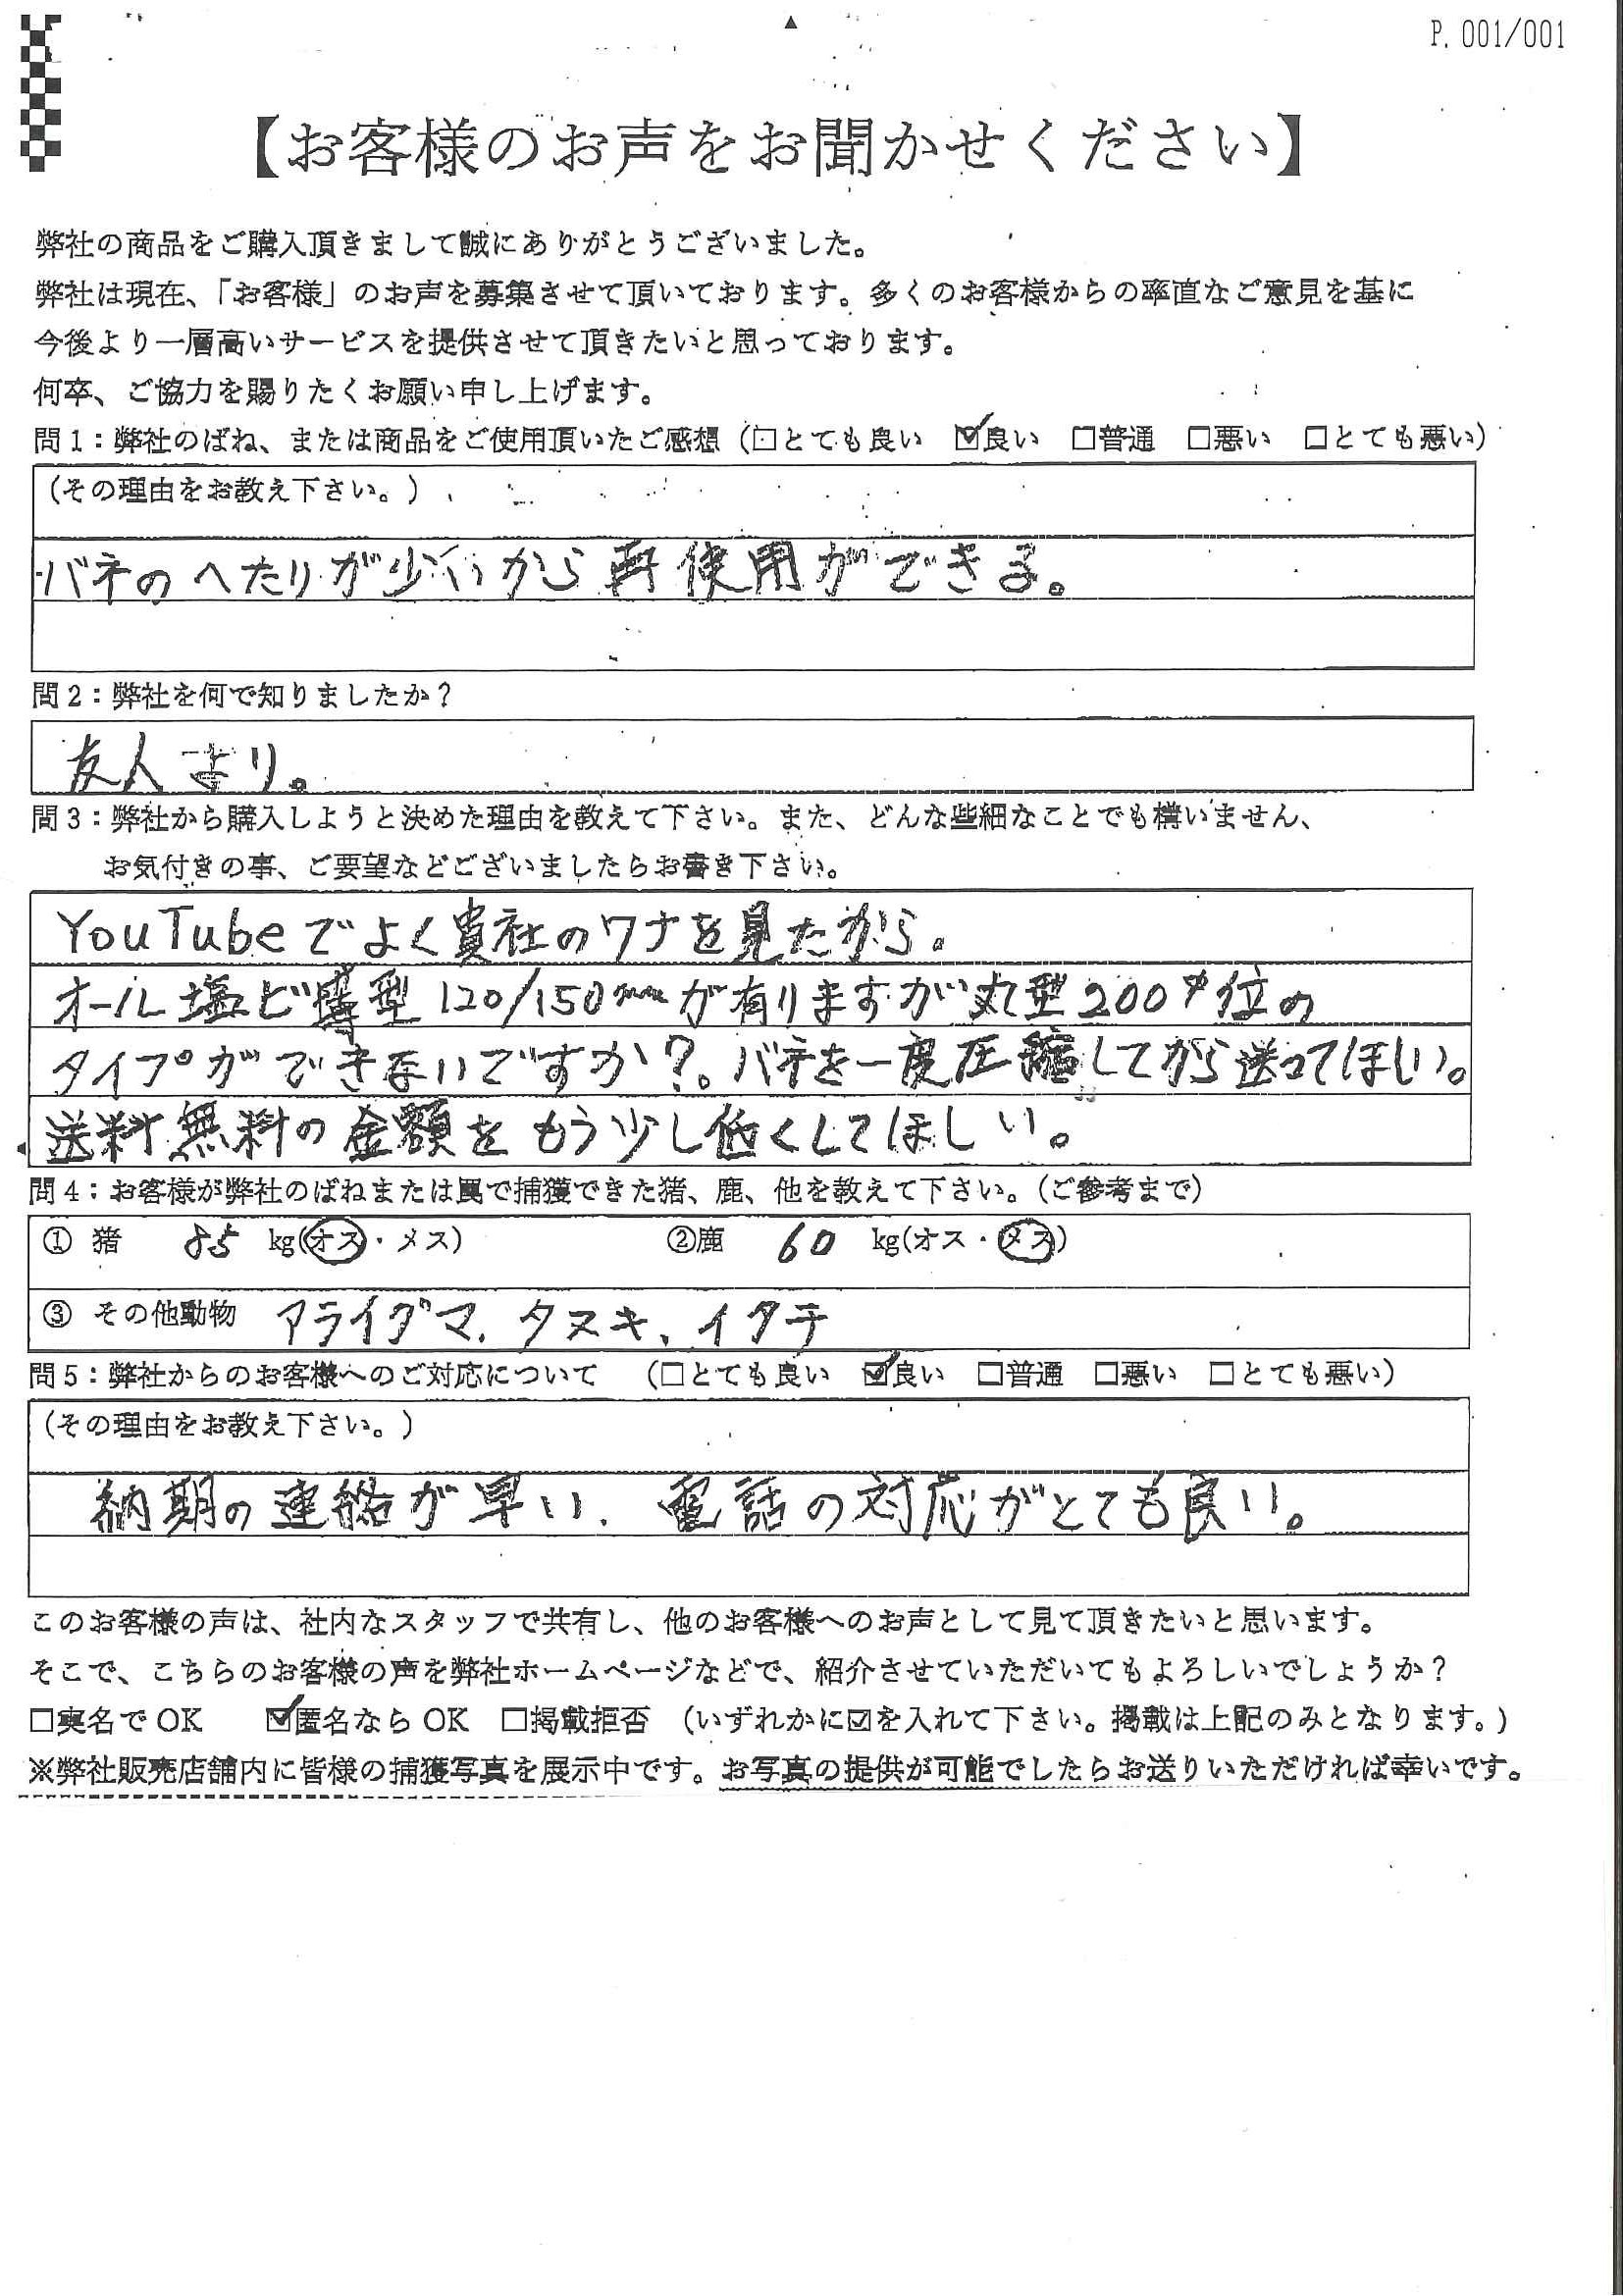 P. 001/001
【お客様のお声をお聞かせください】
弊社の商品をご購入頂きまして誠にありがとうございました。
弊社は現在、「お客様」のお声を募集させて頂いております。多くのお客様からの率直なご意見を基に
今後より一層高いサービスを提供させて頂きたいと思っております。
何卒、ご協力を賜りたくお願い申し上げます。
問1：弊社のばね、または商品をご使用頂いたご感想（□とても良い ☑良い □普通 □悪い □とても悪い）
（その理由をお教え下さい。）
バネのへたりが少いから再使用ができる。
問2：弊社を何で知りましたか？
友人より。
問3：弊社から購入しようと決めた理由を教えて下さい。また、どんな些細なことでも構いません、
お気付きの事、ご要望などございましたらお書き下さい。
YouTubeでよく貴社のワナを見たから。
オール塩ビ 型120/150mmが有りますが丸型200φ位の
タイプができないですか？。バネを一度圧縮してから送ってほしい。
送料無料の金額をもう少し低くしてほしい。
問4：お客様が弊社のばねまたは罠で捕獲できた猪、鹿、他を教えて下さい。（ご参考まで）
① 猪 85 kg(オス・メス) ②鹿 60 kg(オス・メス)
③ その他動物 アライグマ、タヌキ、イタチ
問5：弊社からのお客様へのご対応について （□とても良い ☑良い □普通 □悪い □とても悪い）
（その理由をお教え下さい。）
納期の連絡が早い、電話の対応がとても良い。
このお客様の声は、社内なスタッフで共有し、他のお客様へのお声として見て頂きたいと思います。
そこで、こちらのお客様の声を弊社ホームページなどで、紹介させていただいてもよろしいでしょうか？
□実名でOK ☑匿名ならOK □掲載拒否 （いずれかに☑を入れて下さい。掲載は上記のみとなります。）
※弊社販売店舗内に皆様の捕獲写真を展示中です。お写真の提供が可能でしたらお送りいただければ幸いです。